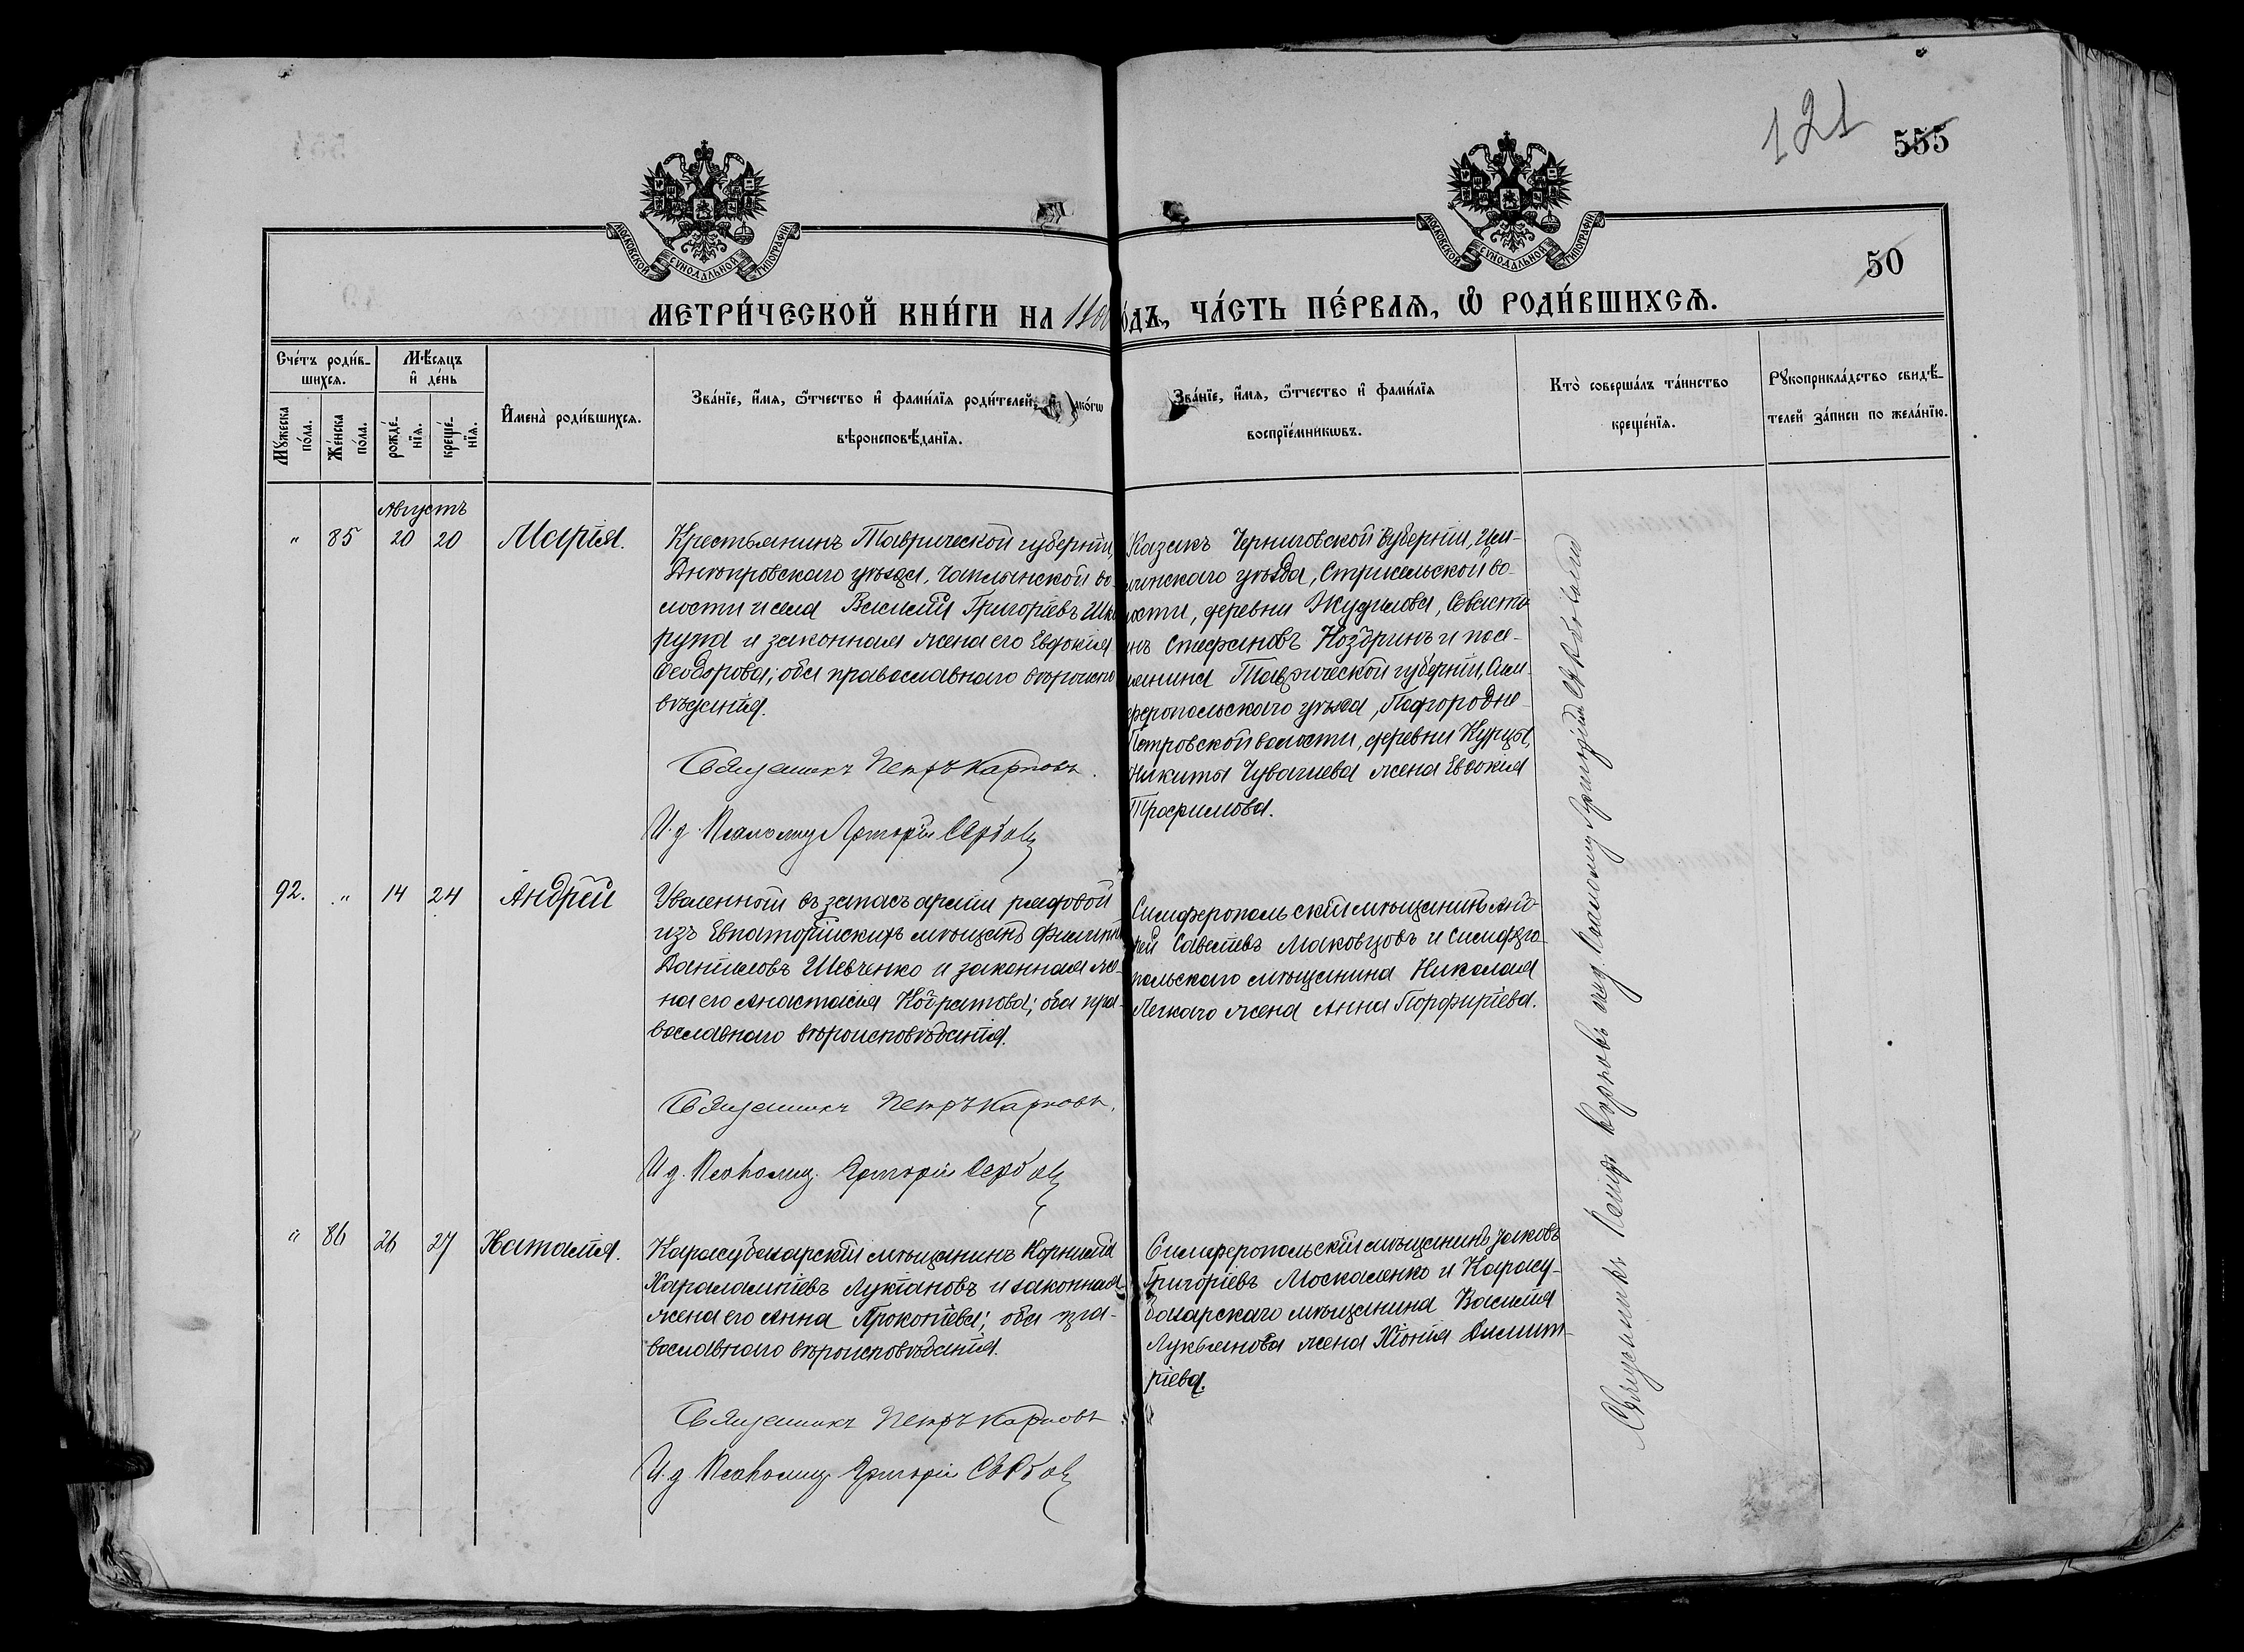 121
555
МОСКОВСКОЙ СѴНОДАЛЬНОЙ ТИПОГРАФІИ
МОСКОВСКОЙ СѴНОДАЛЬНОЙ ТИПОГРАФІИ
50
МЕТРИ́ЧЕСКОЙ КНИ́ГИ НА ОДЪ, ЧА́СТЬ ПЕ́РВАЯ, Ѡ РОДИ́ВШИХСЯ.
Сче́тъ роди́в-
шихся.
Мѣ́сяцъ
и де́нь
Мꙋ́жеска
по́ла.
Же́нска
по́ла.
рожде́-
нїя.
креще́-
нїя.
И҆мена̀ роди́вшихся.
Зва́нїе, и҆́мя, ѻ҆́тчество и҆ фами́лїя роди́телей, и҆ како́гѡ
вѣроисповѣ́данїя.
Зва́нїе, и҆́мя, ѻ҆́тчество и҆ фами́лїя
воспрїе́мникѡвъ.
Кто̀ соверша́лъ та́инство
креще́нїя.
Рꙋкоприкла́дство свидѣ́-
телей за́писи по жела́нїю.
Августъ
" 85 20 20 Марія.
Крестьянинъ Таврической губерніи,
Днѣпровскаго уѣзда, Чаплынской во-
лости и села Василій Григоріевъ Шка
рупа и законная жена его Евдокія
Ѳеодорова; оба православнаго вѣроиспо
вѣданія.
Священникъ Петръ Карповъ.
И. д. Псаломщ. Григорій Сербовъ
Казакъ Черниговской губерніи,
уѣзда, во-
лости, деревни Жудилова, Севасті
нъ Стефановъ Ноздринъ и посе-
лянина Таврической губерніи, Сим-
феропольскаго уѣзда, Подгородне-
Петровской волости, деревни Курцы,
Никиты жена Евдокія
Трофимова.
92. " 14 24 Андрей
Уволенной въ запасъ арміи рядовой
изъ Евпаторійскихъ мѣщанъ Филиппъ
Даниловъ Шевченко и законная же-
на его Анастасія Кондратова; оба пра-
вославнаго вѣроисповѣданія.
Священникъ Петръ Карповъ.
И. д. Псаломщ. Григорій Сербовъ
Симферопольскій мѣщанинъ Анд-
рей Савеліевъ Маковцовъ и Симферо-
польскаго мѣщанина Николая
Легкаго жена Анна Порфиріева.
" 86 26 27 Наталія.
Карасубазарскій мѣщанинъ Корнилій
Харалампіевъ Лукіановъ и законная
жена его Анна Прокопіева; оба пра-
вославнаго вѣроисповѣданія.
Священникъ Петръ Карповъ
И. д. Псаломщ. Григорій Сербовъ
Симферопольскій мѣщанинъ Яковъ
Григоріевъ Москаленко и Карасу-
базарскаго мѣщанина Василія
Лукьянова жена Хіонія Димит-
ріева.
Священникъ Петръ Карповъ и. д. Псаломщ. Григорій